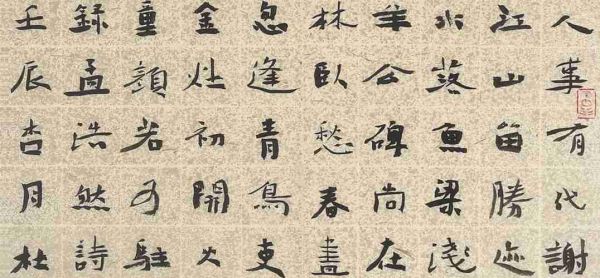 人事有代謝
江山留勝迹
水落魚梁淺
羊公碑尚在
林臥愁春盡
忽逢青鳥吏
金灶初開火
童顏若可駐
錄孟浩然詩
壬辰杏月杜